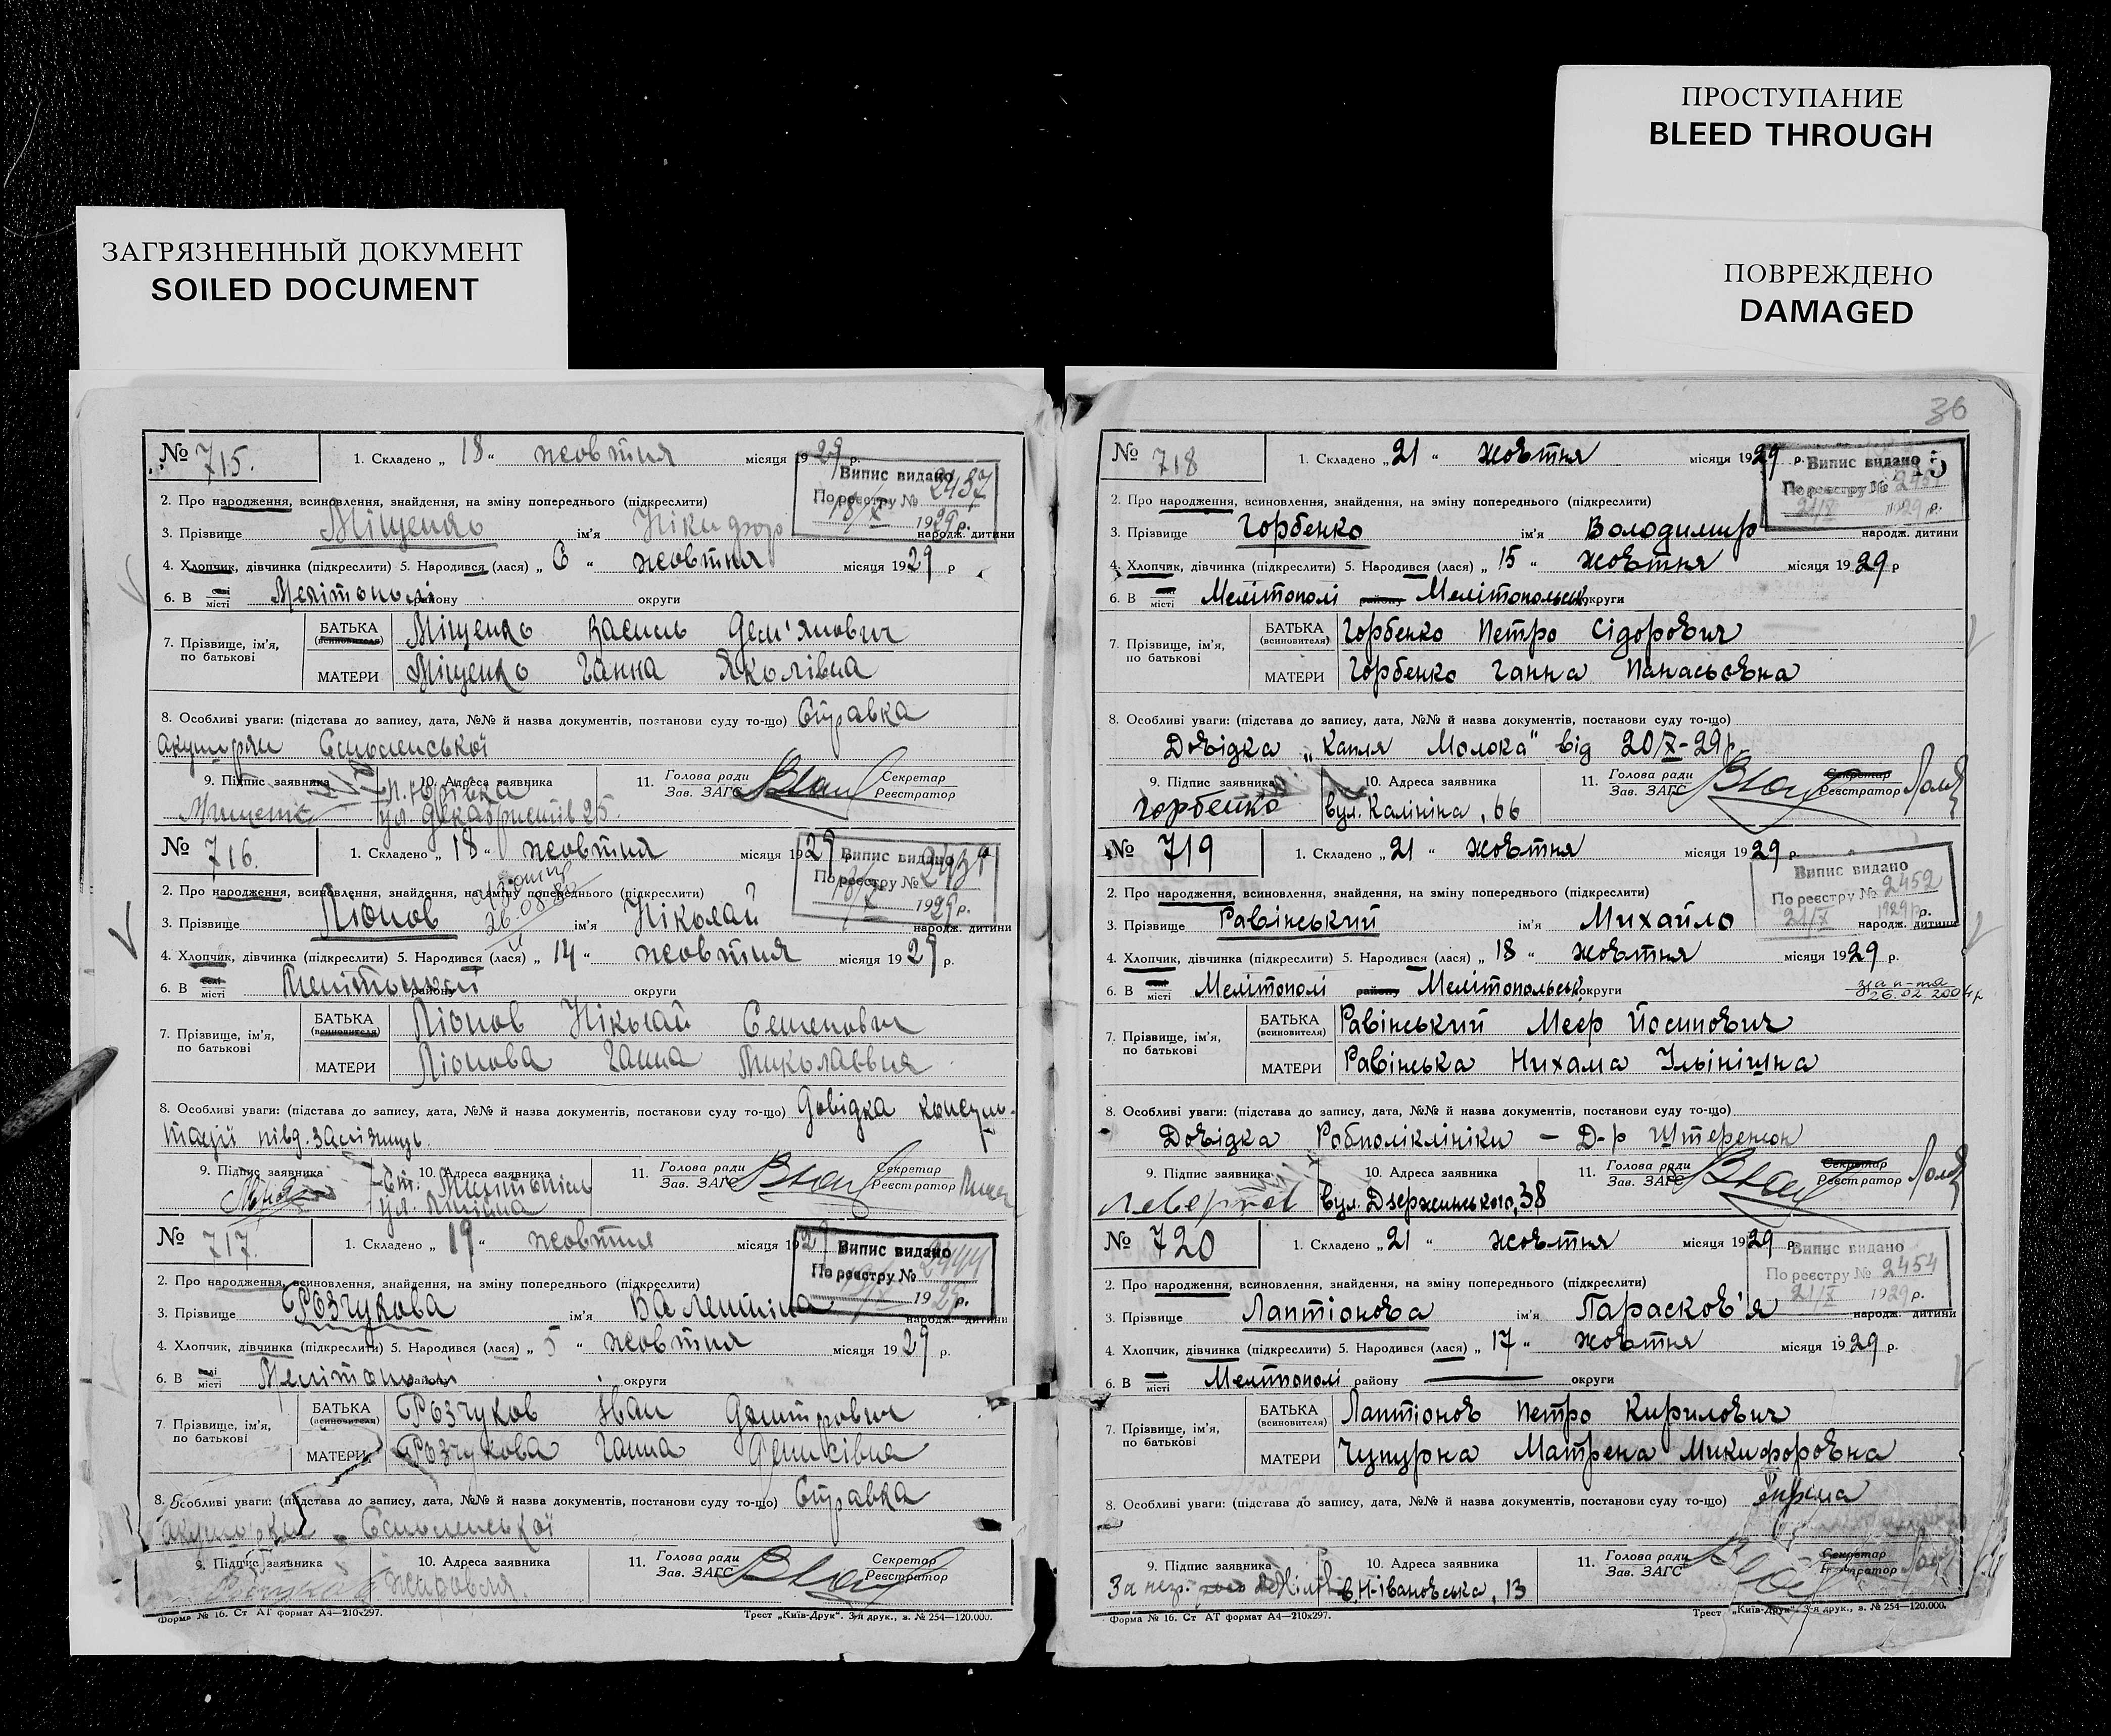 ПРОСТУПАНИЕ
BLEED THROUGH
ЗАГРЯЗНЕННЫЙ ДОКУМЕНТ
SOILED DOCUMENT
ПОВРЕЖДЕНО
DAMAGED
№ 715. 1. Складено „ 18 “ жовтня місяця 1929 р.
Випис видано
По реєстру № 2437
18/X 1929 р.
2. Про народження, всиновлення, знайдення, на зміну попереднього (підкреслити)
3. Прізвище Міщенко ім'я Нікифор народж. дитини
4. Хлопчик, дівчинка (підкреслити) 5. Народився (лася) „ 6 “ жовтня місяця 1929 р
6. В селі місті Мелітополі району округи
7. Прізвище, ім'я, по батькові
БАТЬКА (всиновителя) Міщенко Василь Дем'янович
МАТЕРИ Міщенко Ганна Яколівна
8. Особливі уваги: (підстава до запису, дата, №№ й назва документів, постанови суду то-що) Справка
акушерки Смоленської
9. Підпис заявника 10. Адреса заявника 11. Голова ради Зав. ЗАГС Секретар Реєстратор
ул. Декабристів 25.
№ 716. 1. Складено „ 18 “ жовтня місяця 1929 р.
Випис видано
По реєстру №
18/X 1929 р.
2. Про народження, всиновлення, знайдення, на зміну попереднього (підкреслити)
3. Прізвище Ліонов ім'я Ніколай народж. дитини
4. Хлопчик, дівчинка (підкреслити) 5. Народився (лася) „ 14 “ жовтня місяця 1929 р.
6. В селі місті Мелітополі району округи
7. Прізвище, ім'я, по батькові
БАТЬКА (всиновителя) Ліонов Ніколай Семенович
МАТЕРИ Ліонова Ганна Миколаєвна
8. Особливі уваги: (підстава до запису, дата, №№ й назва документів, постанови суду то-що) Довідка консуль-
тації півд. залізниць.
9. Підпис заявника 10. Адреса заявника 11. Голова ради Зав. ЗАГС Секретар Реєстратор
Ст. Мелітополь
№ 717. 1. Складено „ 19 “ жовтня місяця 1929
Випис видано
По реєстру № 2444
19/X 1929 р.
2. Про народження, всиновлення, знайдення, на зміну попереднього (підкреслити)
3. Прізвище ім'я Валентіна народж. дитини
4. Хлопчик, дівчинка (підкреслити) 5. Народився (лася) „ 5 “ жовтня місяця 1929 р.
6. В селі місті Мелітополі району округи
7. Прізвище, ім'я, по батькові
БАТЬКА (всиновителя) Іван Дмитрович
МАТЕРИ Ганна Денисівна
8. Особливі уваги: (підстава до запису, дата, №№ й назва документів, постанови суду то-що) Справка
акушерки Смоленської
9. Підпис заявника 10. Адреса заявника 11. Голова ради Зав. ЗАГС Секретар Реєстратор
Форма № 16. Ст АТ формат А4—210х297. Трест „Київ-Друк“. 3-я друк., з. № 254—120.000.
36
№ 718 1. Складено „ 21 “ жовтня місяця 1929 р.
Випис видано
По реєстру №
21/X 1929 р.
2. Про народження, всиновлення, знайдення, на зміну попереднього (підкреслити)
3. Прізвище Горбенко ім'я Володимир народж. дитини
4. Хлопчик, дівчинка (підкреслити) 5. Народився (лася) „ 15 “ жовтня місяця 1929 р
6. В селі місті Мелітополі району Мелітопольськ. округи
7. Прізвище, ім'я, по батькові
БАТЬКА (всиновителя) Горбенко Петро Сідорович
МАТЕРИ Горбенко Ганна Панасьовна
8. Особливі уваги: (підстава до запису, дата, №№ й назва документів, постанови суду то-що)
Довідка „Капля Молока" від 20/X-29р.
9. Підпис заявника 10. Адреса заявника 11. Голова ради Зав. ЗАГС Секретар Реєстратор
Горбенко вул. Калініна, 66
№ 719 1. Складено „ 21 “ жовтня місяця 1929 р.
Випис видано
По реєстру № 2452
21/X 1929 р.
2. Про народження, всиновлення, знайдення, на зміну попереднього (підкреслити)
3. Прізвище Равінський ім'я Михайло народж. дитини
4. Хлопчик, дівчинка (підкреслити) 5. Народився (лася) „ 18 “ жовтня місяця 1929 р.
6. В селі місті Мелітополі району Мелітопольськ. округи
26.02.2004р
7. Прізвище, ім'я, по батькові
БАТЬКА (всиновителя) Равінський Меєр Йосипович
МАТЕРИ Равінська Нихама Ільінішна
8. Особливі уваги: (підстава до запису, дата, №№ й назва документів, постанови суду то-що)
Довідка Робполіклініки — Д-р Штеренсон
9. Підпис заявника 10. Адреса заявника 11. Голова ради Зав. ЗАГС Секретар Реєстратор
вул. Дзержинського, 38
№ 720 1. Складено „ 21 “ жовтня місяця 1929 р.
Випис видано
По реєстру № 2454
21/X 1929 р.
2. Про народження, всиновлення, знайдення, на зміну попереднього (підкреслити)
3. Прізвище Лаптіонова ім'я Парасков'я народж. дитини
4. Хлопчик, дівчинка (підкреслити) 5. Народився (лася) „ 17 “ жовтня місяця 1929 р.
6. В селі місті Мелітополі району округи
7. Прізвище, ім'я, по батькові
БАТЬКА (всиновителя) Лаптіонов Петро Кирилович
МАТЕРИ Чупурна Матрена Микифоровна
8. Особливі уваги: (підстава до запису, дата, №№ й назва документів, постанови суду то-що)
9. Підпис заявника 10. Адреса заявника 11. Голова ради Зав. ЗАГС Секретар Реєстратор
в. Н-Івановська, 13
Форма № 16. Ст АТ формат А4—210х297. Трест „Київ-Друк“. 3-я друк., з. № 254—120.000.